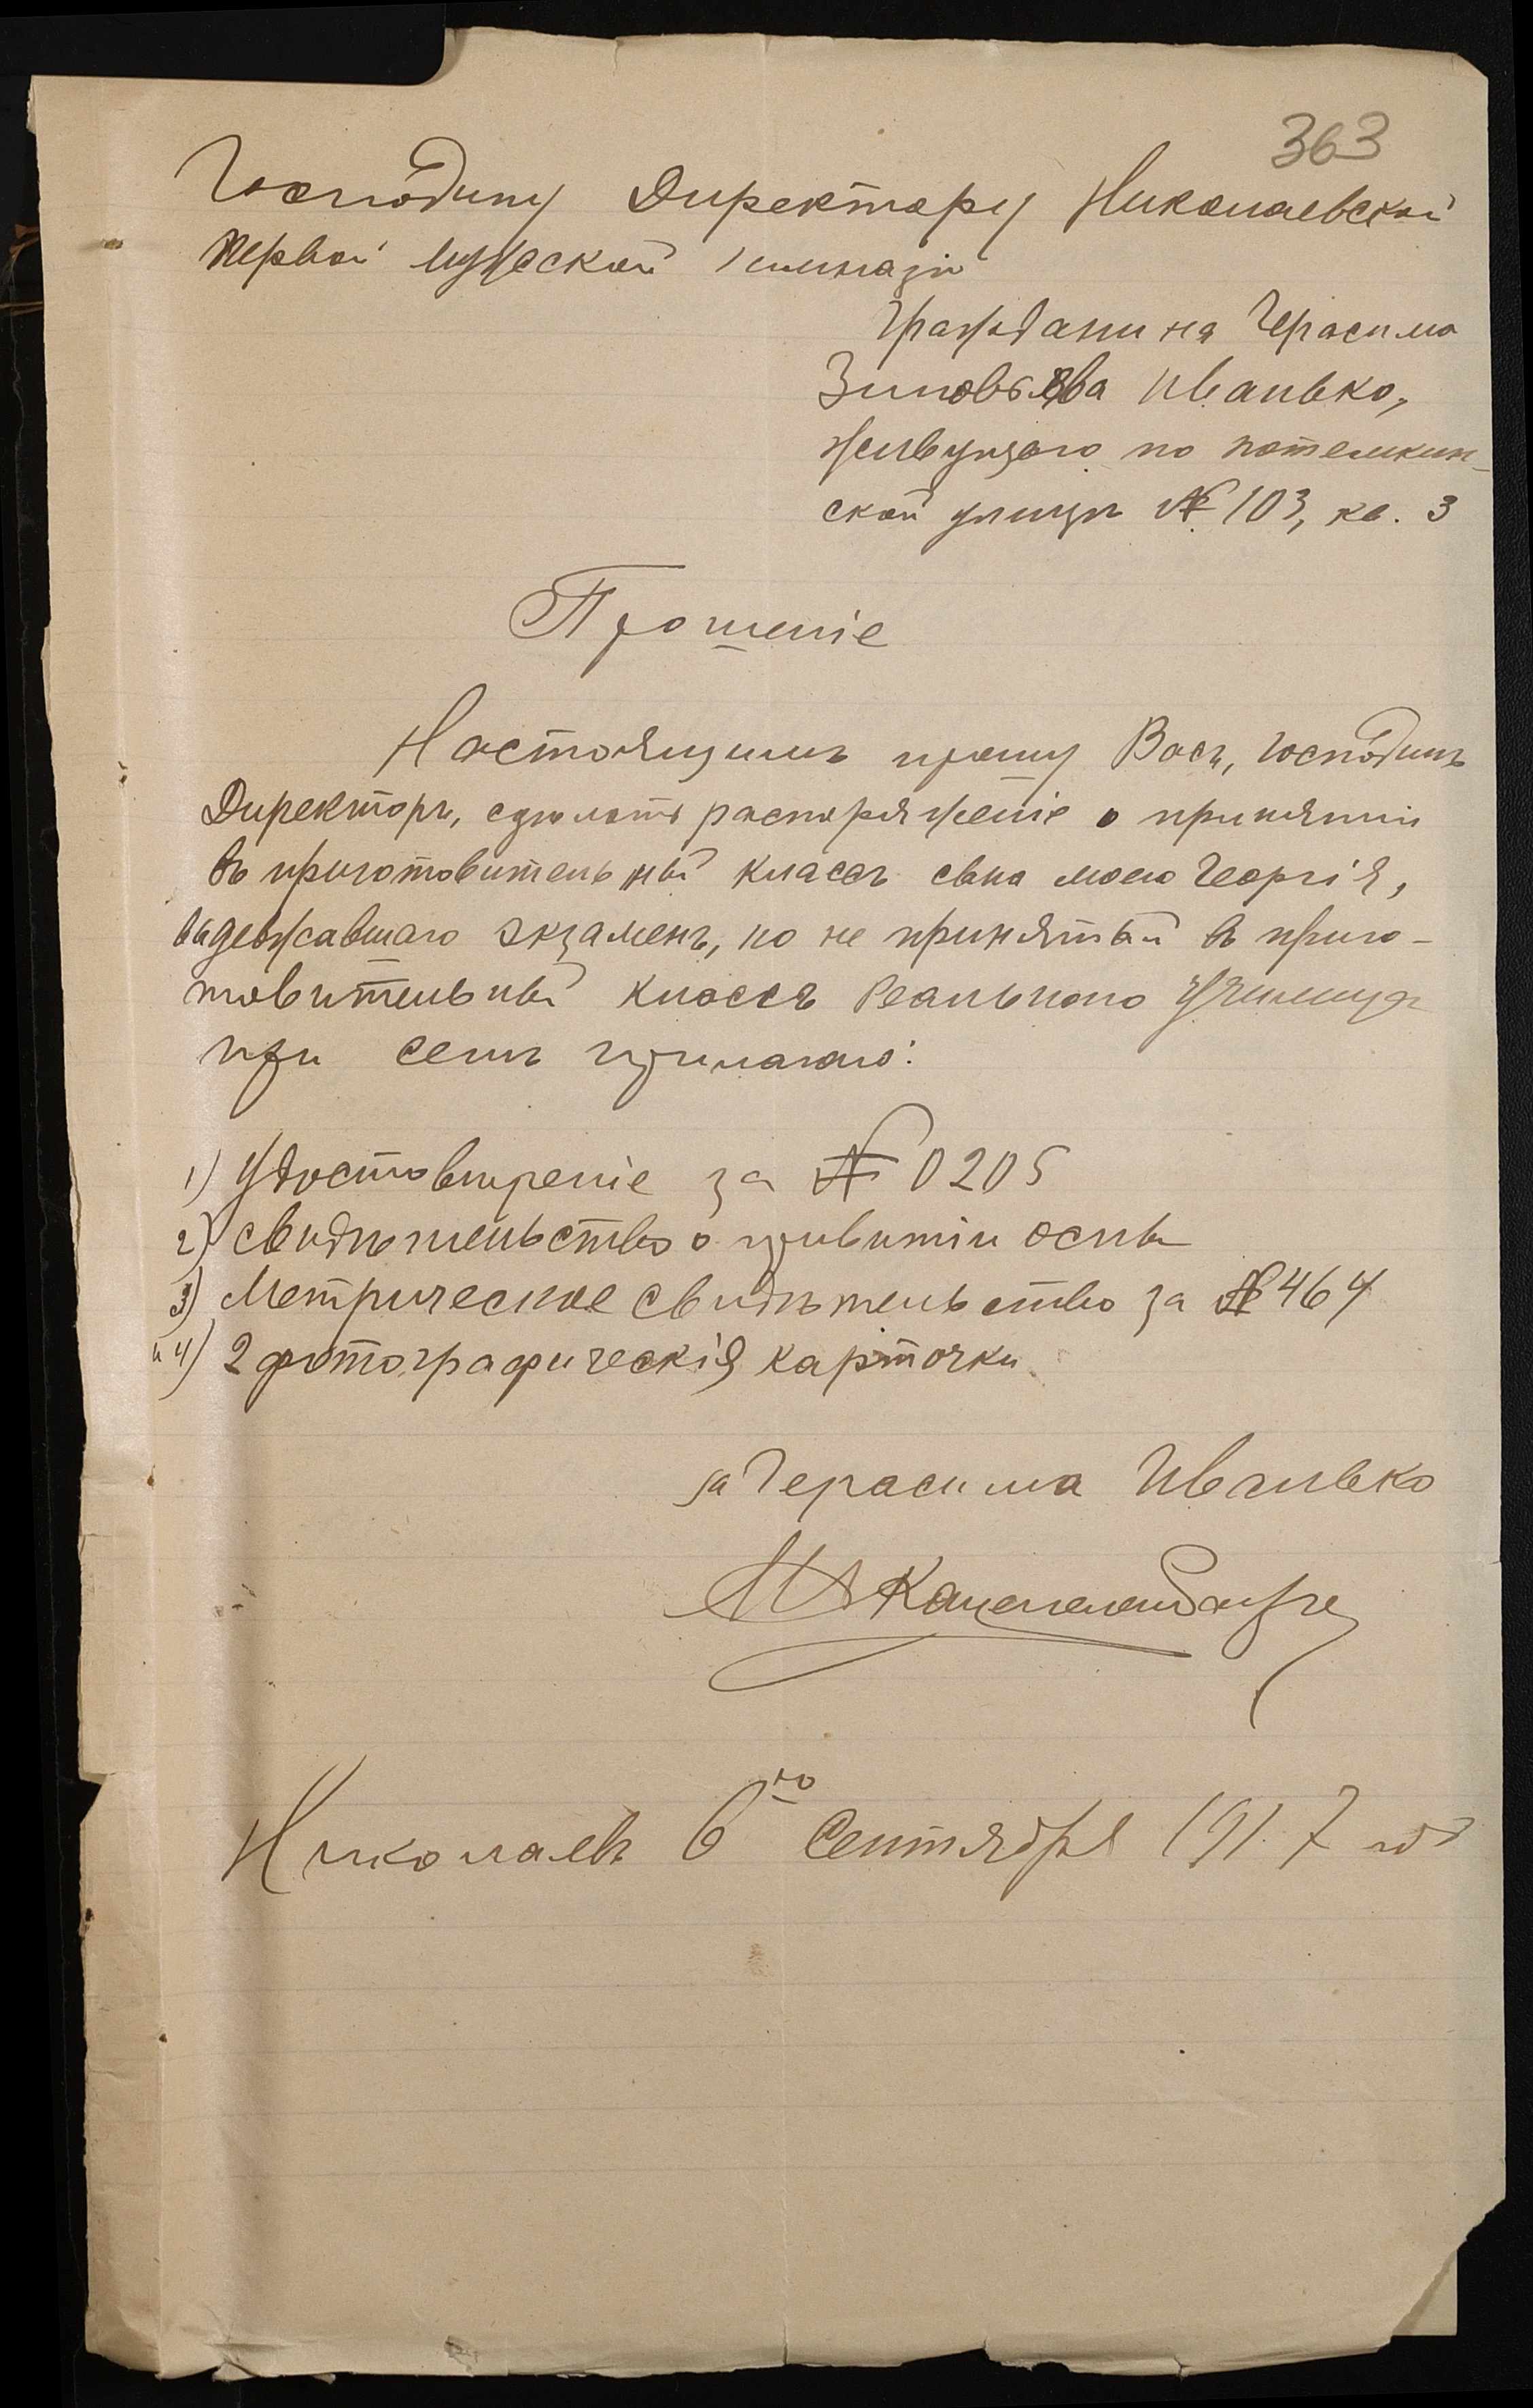 363
Господину Директору Николаевской
Первой мужской гимназіи
Гражданина Герасима
Зиновьева Иванько,
живущаго по Потемкин-
ской улицѣ № 103, кв. 3
Прошеніе
Настоящимъ прошу Васъ, Господинъ
Директоръ, сдѣлать распоряженіе о принятіи
въ приготовительный классъ сына моего Георгія,
выдержавшаго экзаменъ, но не принятый въ приго-
товительный классъ Реальнаго Училища
при семъ прилагаю:
1) Удостовѣреніе за № 0205
2) свидѣтельство о привитіи оспы
3) Метрическое свидѣтельство за № 464
и 4) 2 фотографическія карточки
за Герасима Иванько
Николаевъ 6го Сентября 1917 год